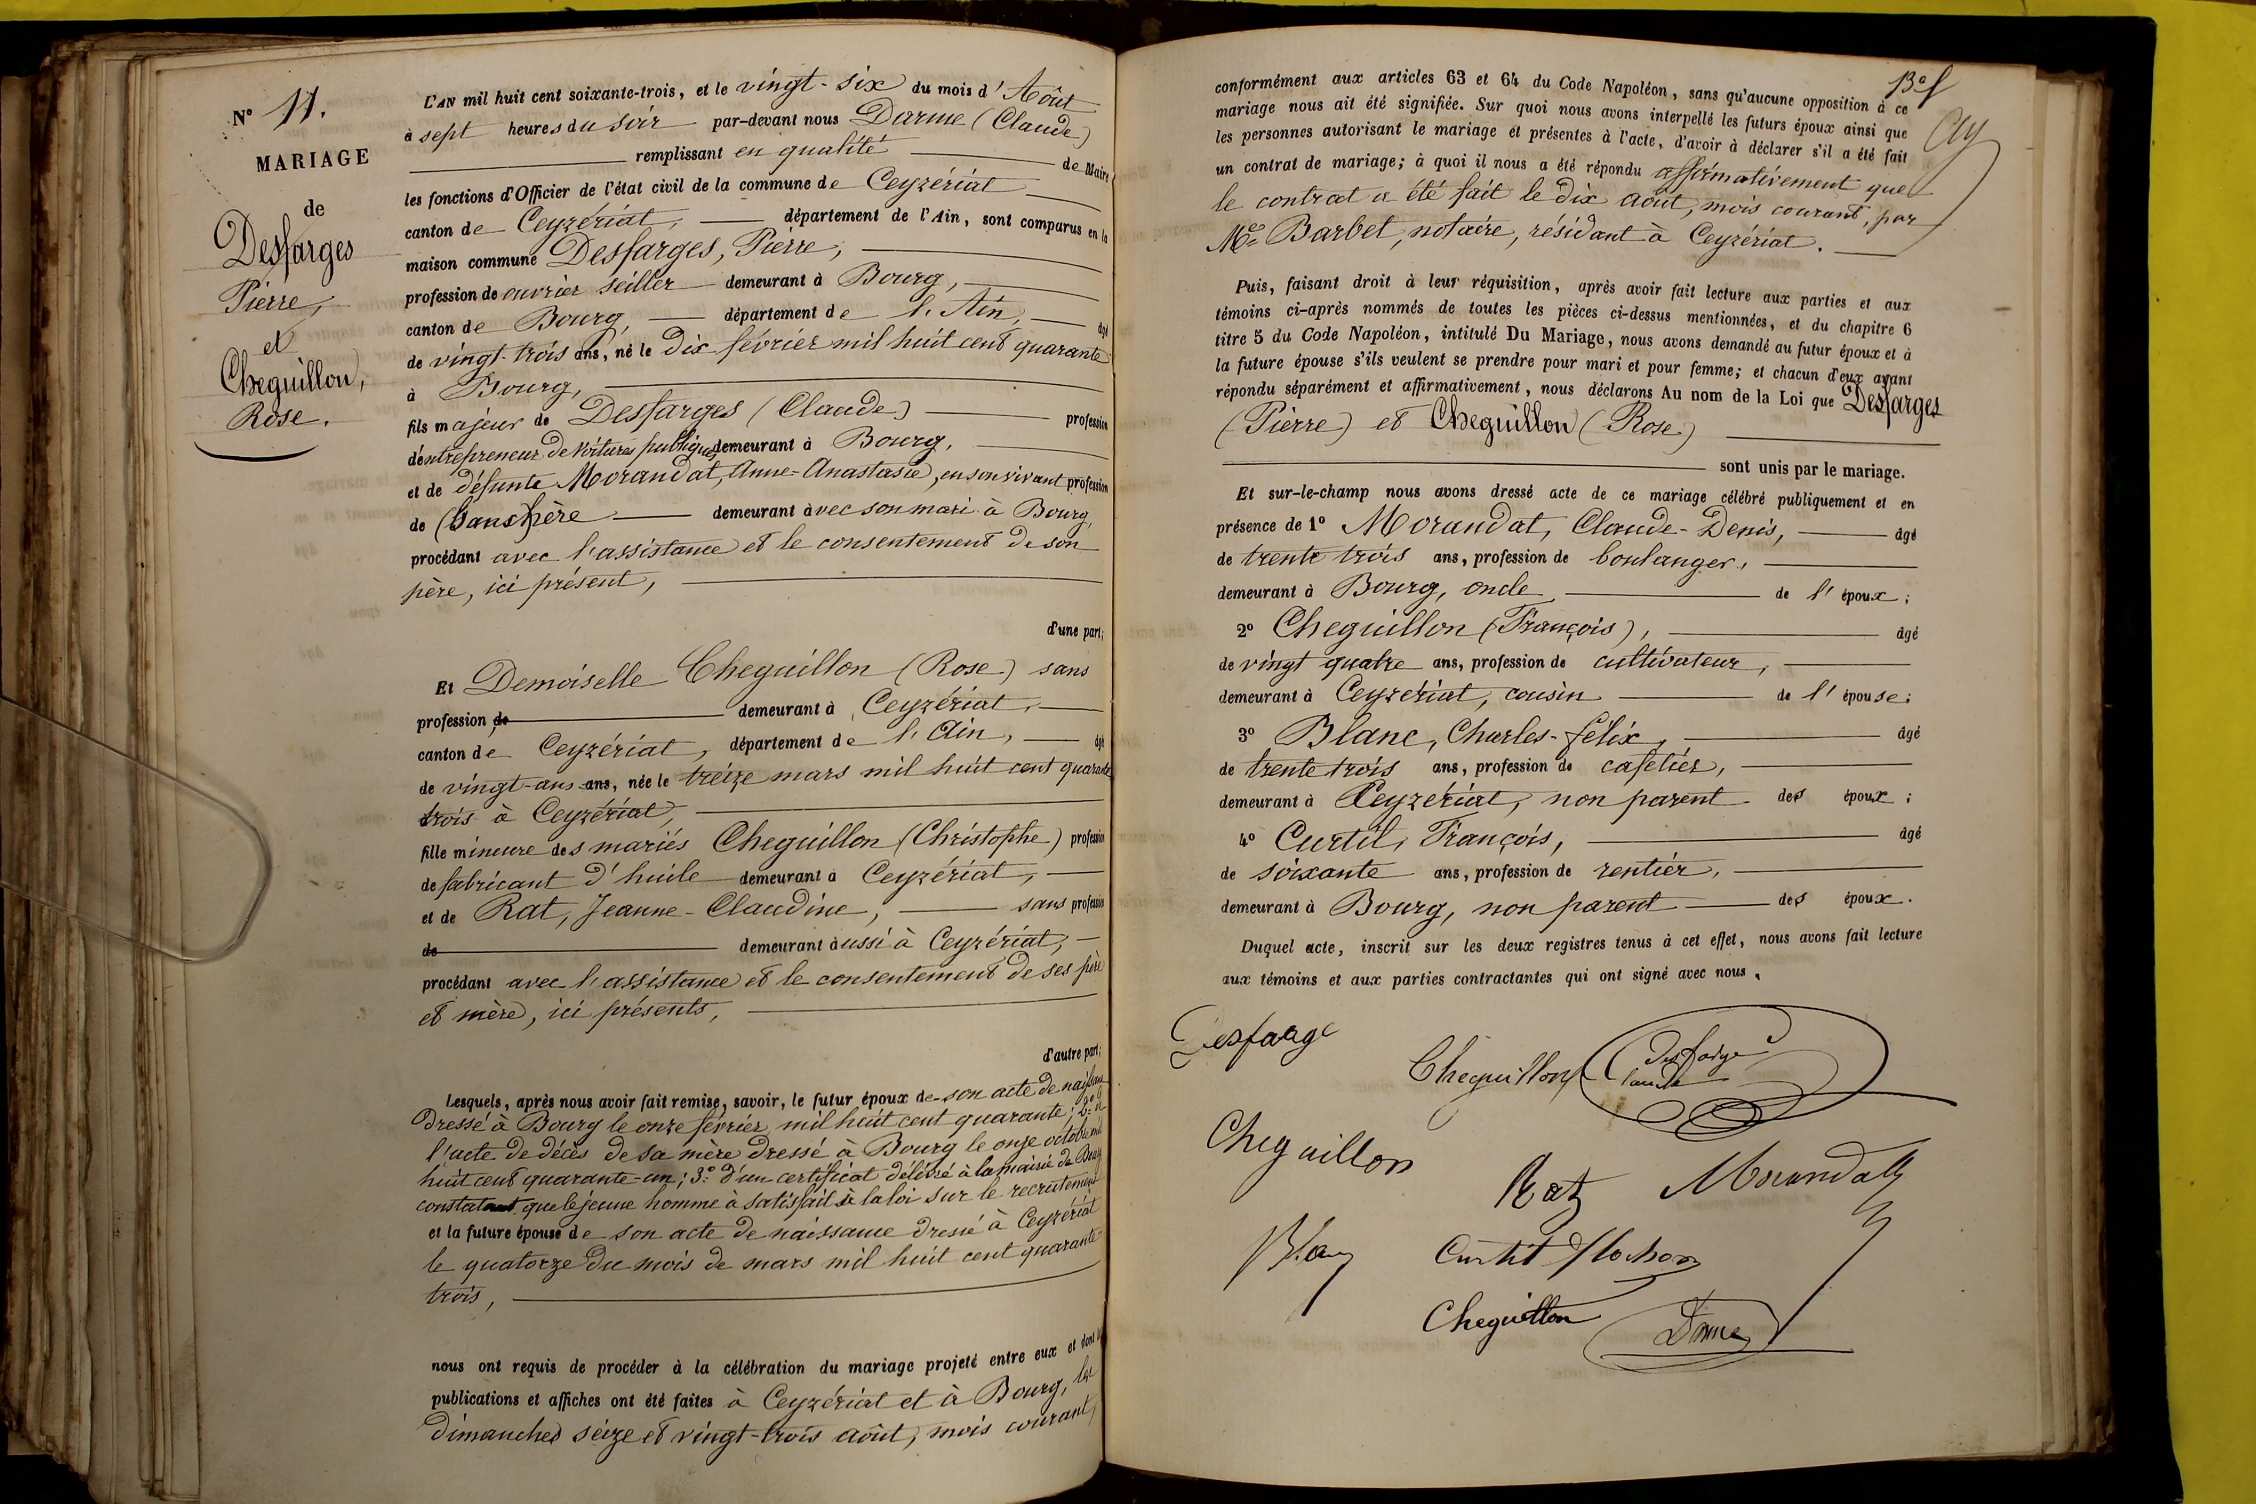 N° 11.
MARIAGE
de
Desfarges
Pierre,
et
Cheguillon,
Rose.
L'AN mil huit cent soixante-trois, et le vingt-six du mois d'Août
à sept heures du soir par-devant nous Darme (Claude)
remplissant en qualité de Maire
les fonctions d'Officier de l'état civil de la commune de Ceyzériat
canton de Ceyzériat, département de l'Ain, sont comparus en la
maison commune Desfarges, Pierre,
profession de ouvrier sellier demeurant à Bourg,
canton de Bourg, département de l'Ain, âgé
de vingt-trois ans, né le dix février mil huit cent quarante
à Bourg,
fils majeur de Desfarges (Claude) profession
d'entrepreneur de voitures publiques demeurant à Bourg,
et de défunte Morandat, Anne-Anastasie, en son vivant profession
de demeurant avec son mari à Bourg,
procédant avec l'assistance et le consentement de son
père, ici présent,
d'une part;
Et Demoiselle Cheguillon (Rose) sans
profession de demeurant à Ceyzériat,
canton de Ceyzériat, département de l'Ain, âgé
de vingt-ans ans, née le treize mars mil huit cent quarante
trois à Ceyzériat,
fille mineure des mariés Cheguillon (Christophe) profession
de fabricant d'huile demeurant à Ceyzériat,
et de Rat, Jeanne-Claudine, sans profession
de demeurant aussi à Ceyzériat,
procédant avec l'assistance et le consentement de ses père
et mère, ici présents,
d'autre part;
Lesquels, après nous avoir fait remise, savoir, le futur époux de son acte de naissance
dressé à Bourg le onze février mil huit cent quarante; 2° de
l'acte de décès de sa mère dressé à Bourg le onze octobre mil
huit cent quarante-un; 3° d'un certificat délivré à la mairie de Bourg
constatant que le jeune homme à satisfait à la loi sur le recrutement
et la future épouse de son acte de naissance dressé à Ceyzériat
le quatorze du mois de mars mil huit cent quarante
trois,
nous ont requis de procéder à la célébration du mariage projeté entre eux et dont les
publications et affiches ont été faites à Ceyzériat et à Bourg, les
dimanches seize et vingt-trois août, mois courant,
conformément aux articles 63 et 64 du Code Napoléon, sans qu'aucune opposition à ce
mariage nous ait été signifiée. Sur quoi nous avons interpellé les futurs époux ainsi que
les personnes autorisant le mariage et présentes à l'acte, d'avoir à déclarer s'il a été fait
un contrat de mariage; à quoi il nous a été répondu affirmativement que
le contrat a été fait le dix août, mois courant, par
Me Barbet, notaire, résidant à Ceyzériat.
Puis, faisant droit à leur réquisition, après avoir fait lecture aux parties et aux
témoins ci-après nommés de toutes les pièces ci-dessus mentionnées, et du chapitre 6
titre 5 du Code Napoléon, intitulé Du Mariage, nous avons demandé au futur époux et à
la future épouse s'ils veulent se prendre pour mari et pour femme; et chacun d'eux ayant
répondu séparément et affirmativement, nous déclarons Au nom de la Loi que Desfarges
(Pierre) et Cheguillon (Rose)
sont unis par le mariage.
Et sur-le-champ nous avons dressé acte de ce mariage célébré publiquement et en
présence de 1° Morandat, Claude-Denis, âgé
de trente trois ans, profession de boulanger,
demeurant à Bourg, oncle de l'époux;
2° Cheguillon (François), âgé
de vingt quatre ans, profession de cultivateur,
demeurant à Ceyzériat, cousin de l'épouse;
3° Blanc, Charles-Félix, âgé
de trente trois ans, profession de cafetier,
demeurant à Ceyzériat, non parent des époux;
4° Curtil, François, âgé
de soixante ans, profession de rentier,
demeurant à Bourg, non parent des époux.
Duquel acte, inscrit sur les deux registres tenus à cet effet, nous avons fait lecture
aux témoins et aux parties contractantes qui ont signé avec nous.
Desfarge
Cheguillon
desfarge
claude
Cheguillon
Rat
Morandat
Blanc
Curtil
Cheguillon
Darme